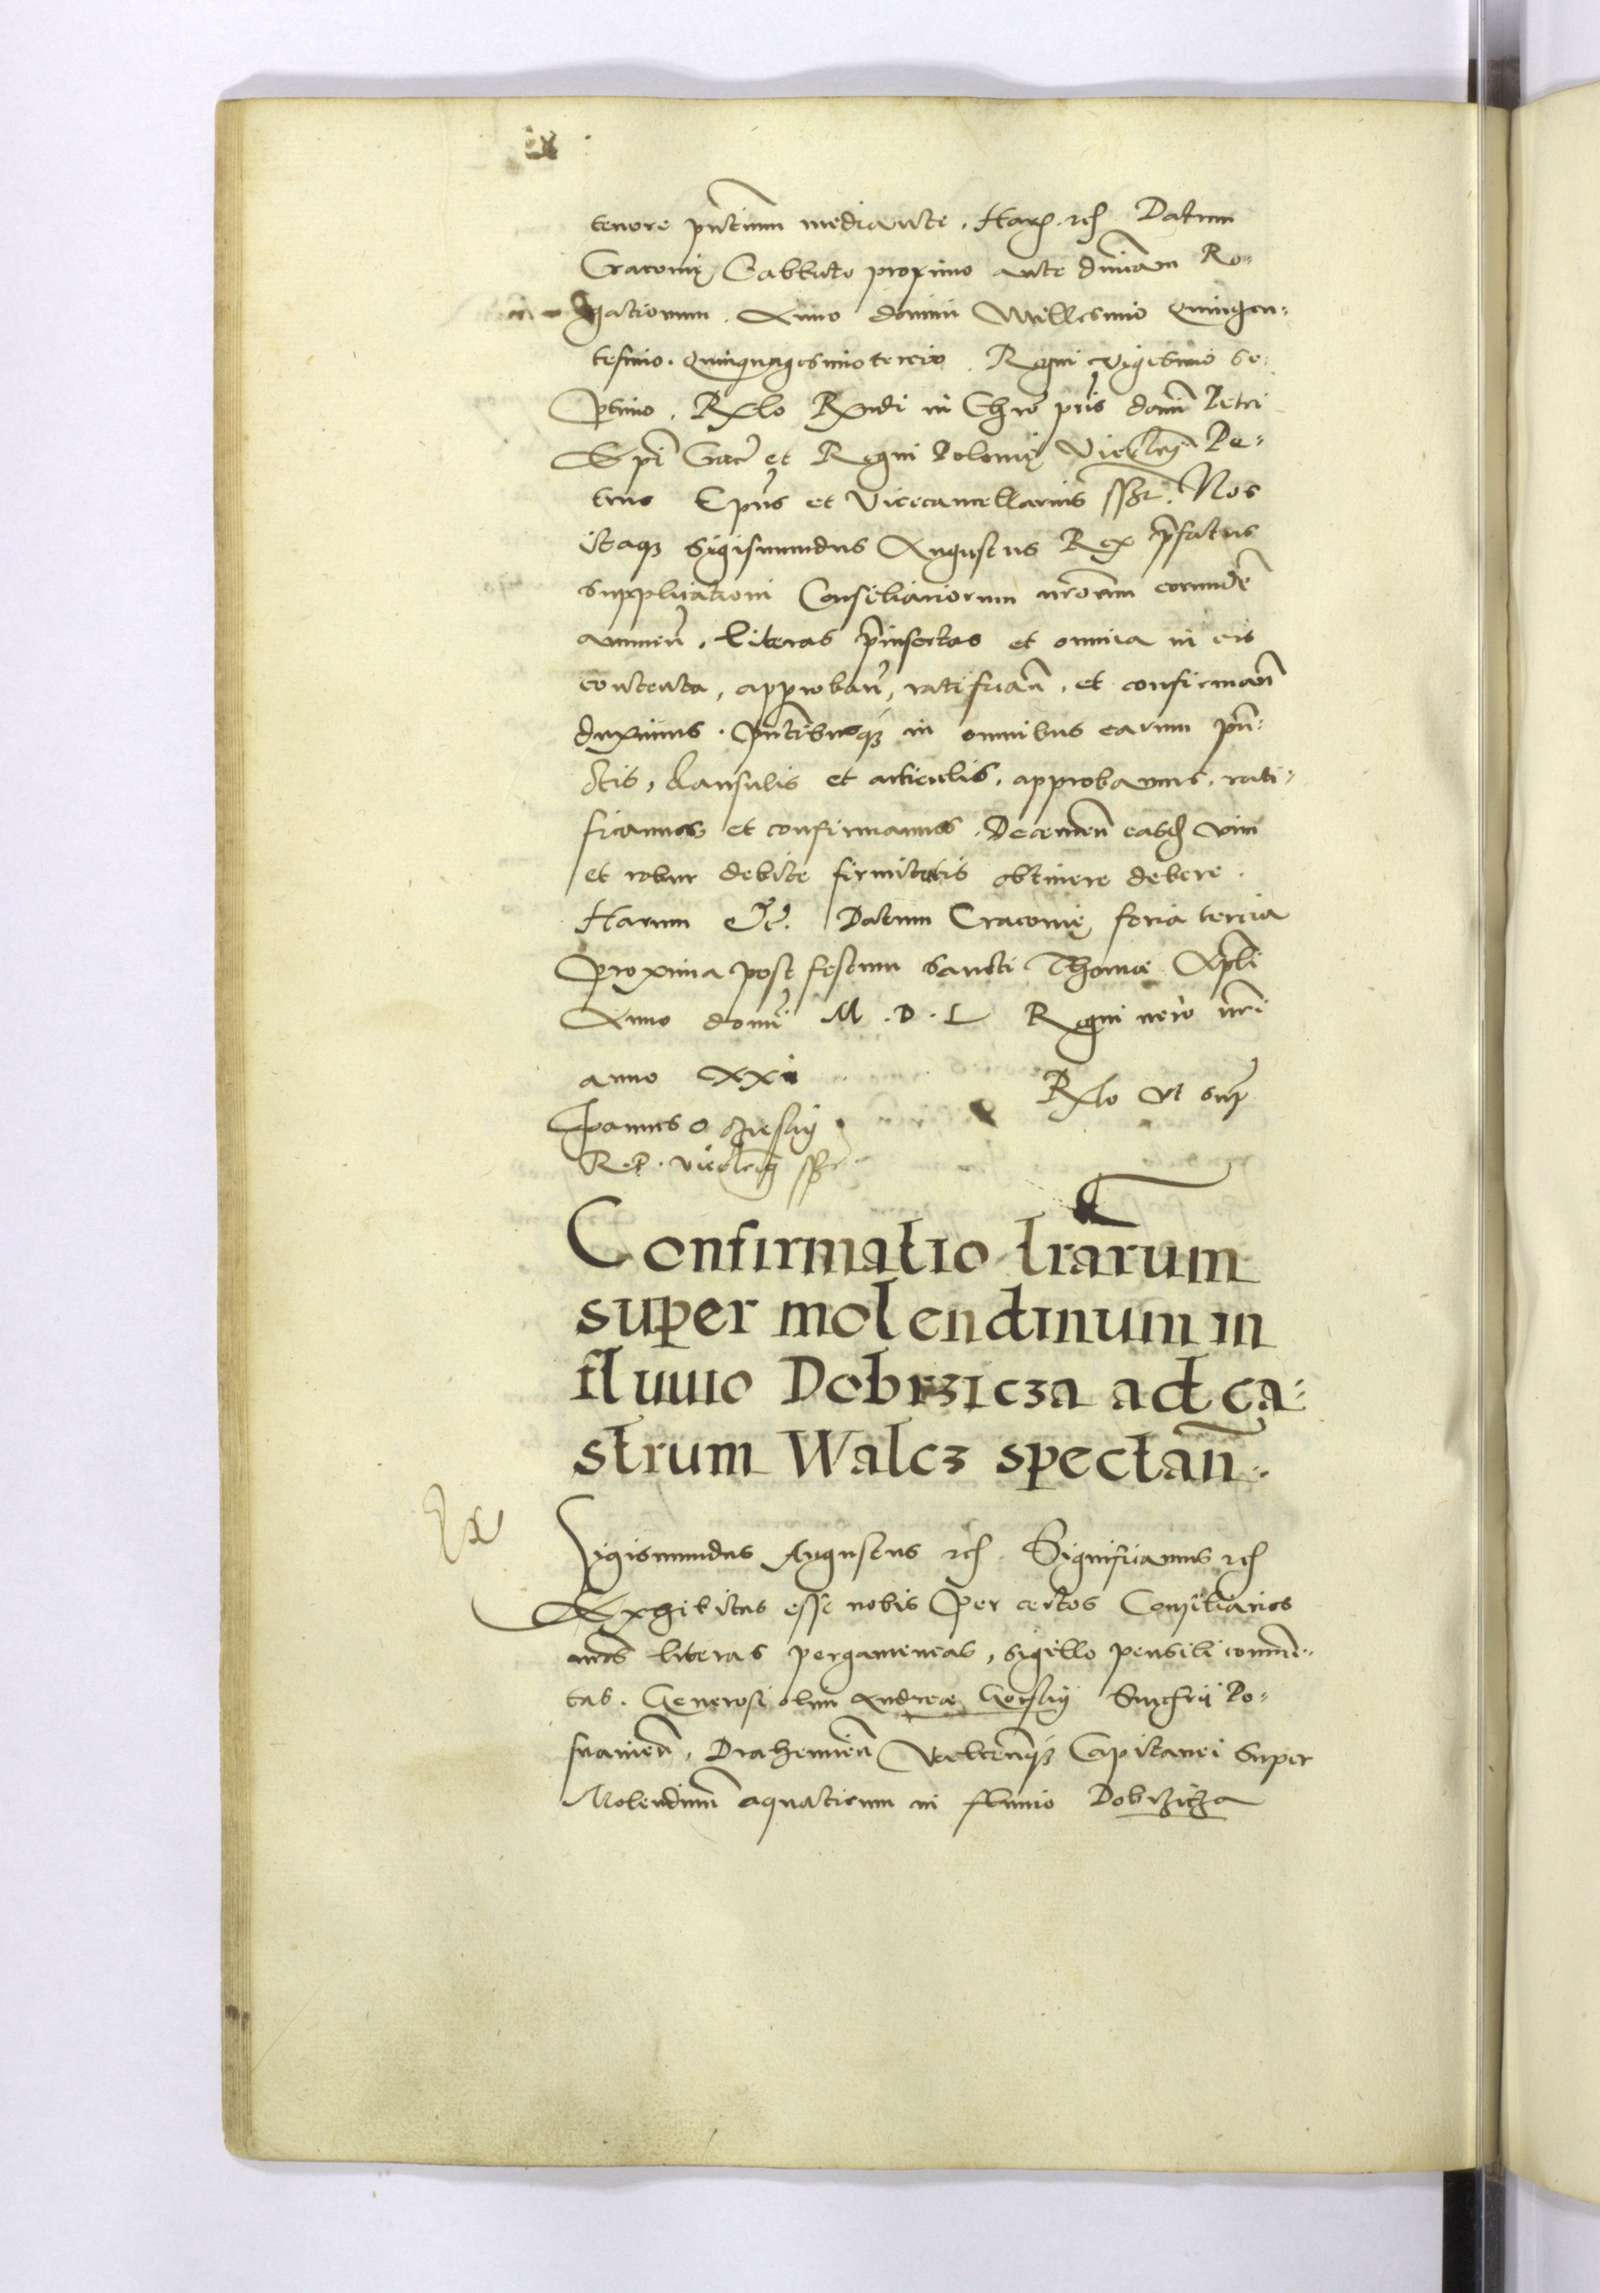 tenore pñtium mediante. Harz. rcħ Datum
Cracoviȩ Sabbato proximo ante dñicam Ro-
gationum. Anno domini Millesimo Quingen-
tesimo. Quinquagesimotercio. Regni vigesimo se-
ptimo. Rxlo Rxndi in Chro pris domi Petri
Epi Crac et Regni Poloniȩ Vicecancȩ Pe-
trus Epus et Vicecancellarius sszt. Nos
itaqȝ Sigismundus Augustus Rex p̃fatus
supplicationi Consiliariorum nrorum eorumdē
annuen̄. Literas p̃insertas et omnia in eis
contenta, approban̄, ratifican̄, et confirman̄
duximus. Pñtibusqȝ in omnibus earum pun-
ctis, clausulis et articulis, approbamus, rati-
ficamus et confirmamus. Decernen̄ easdē vim
et robur debite firmitatis obtinere debere.
Harum &c. Datum Cracoviȩ feria tercia
proxima post festum Sancti Thomæ Apli
Anno domi M.D.L Regni vero nri
anno XXi
Rxlo vt sup
Joannes Ociesky
R.P. vicecancȩ sszt
Confirmatio lr̄arum
super molendinum in
fluvio Dobrzicza ad ca-
strum Walcz spectan̄.
Sigismundus Augustus rcħ. Significamus rcħ
Exhibitas esse nobis per certos Consiliarios
nr̄os literas pergameneas, sigillo pensili commu-
tas. Generosi olim Andreæ Gorsky Succ̄rii Po-
snanien̄. Drahemien̄ Valcen̄qȝ Capitanei super
Molendinū aquaticum in fluvio Dobrzicza